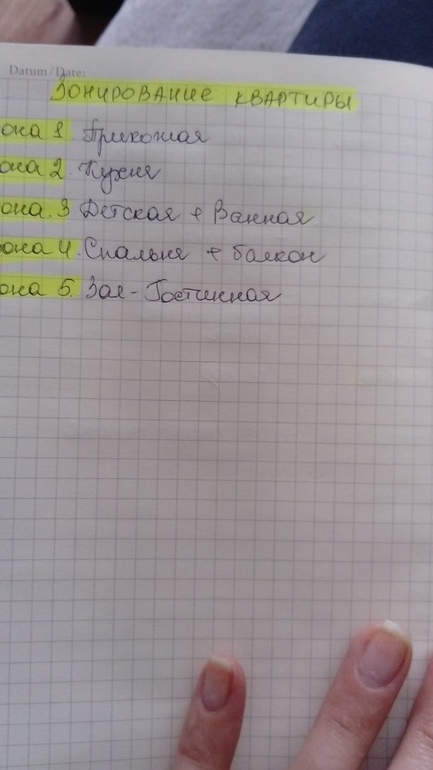 Datum/Date:
ЗОНИРОВАНИЕ КВАРТИРЫ
она 1. Прихожая
она 2. Кухня
она 3 Детская + Ванная
она 4. Спальня + балкон
она 5. Зал-Гостинная